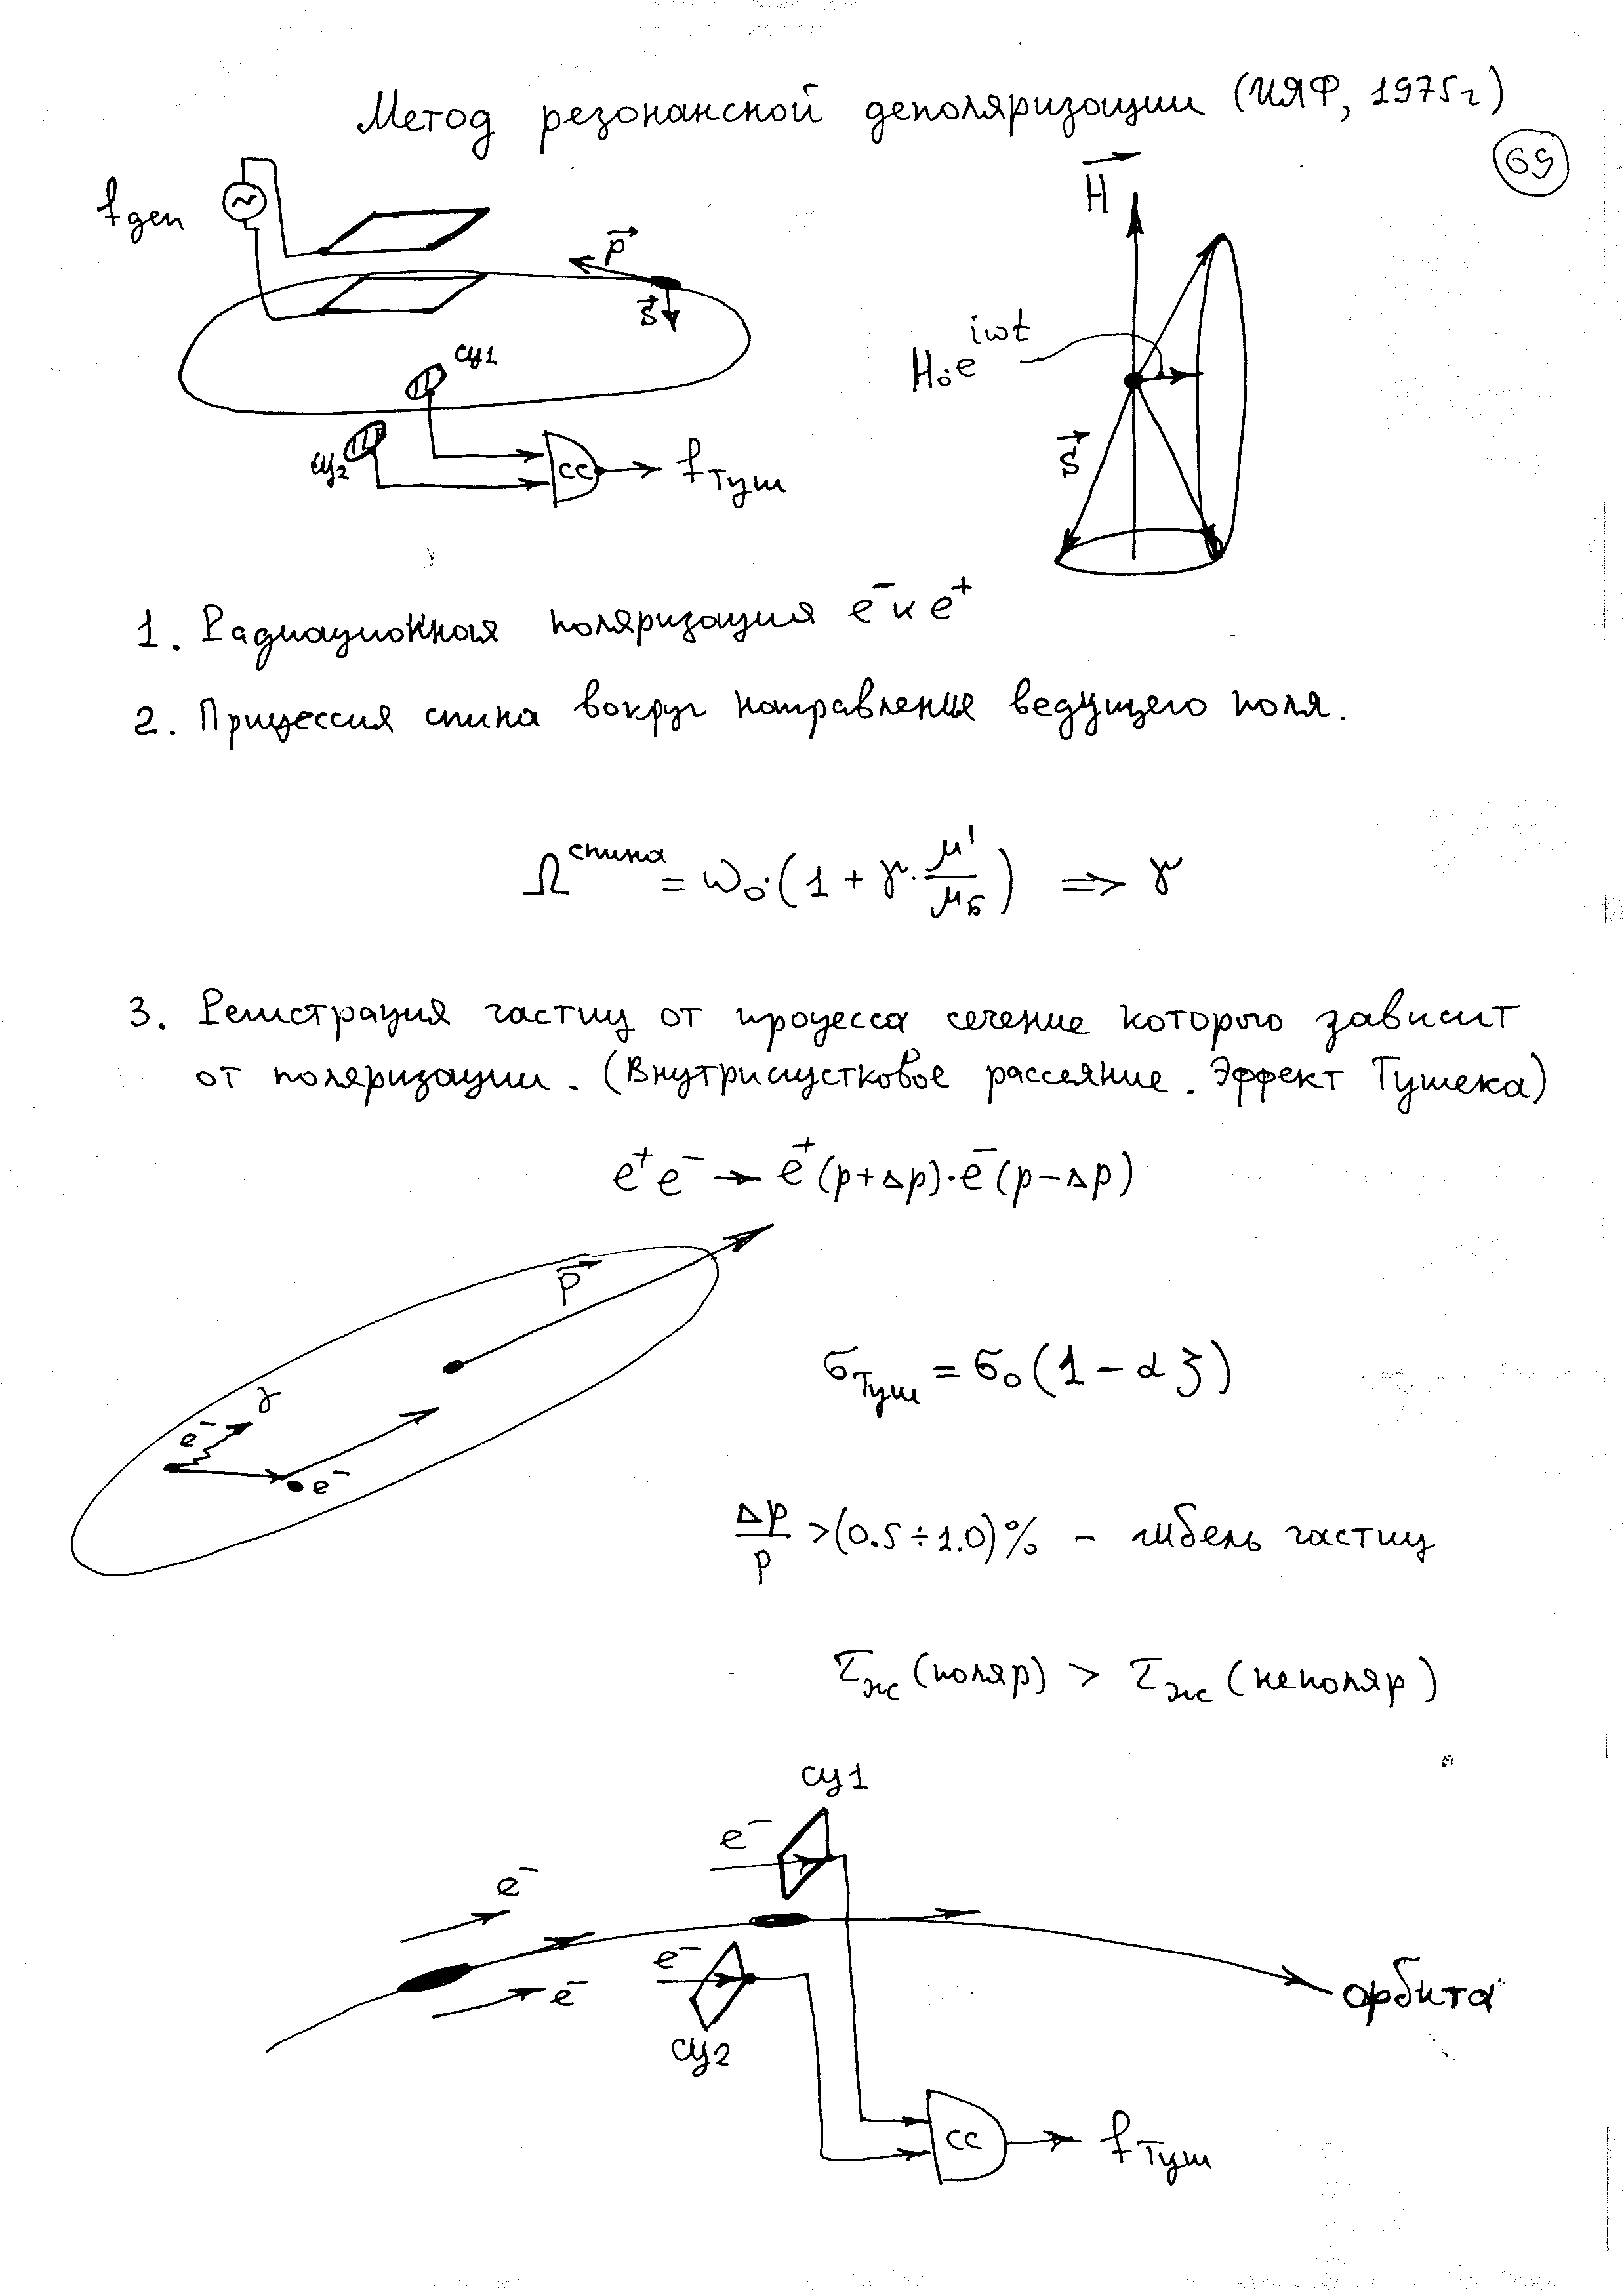 Метод резонансной деполяризации (ИЯФ, 1975г)
69
fдеп
p
S
сч1
сч2
СС
fТуш
H
H₀e^iωt
S
1. Радиационная поляризация e⁻ и e⁺
2. Прицессия спина вокруг направление ведущего поля.
Ω^спина = ω₀·(1 + γ·μ'/μБ) => γ
3. Регистрация частиц от процесса сечение которого зависит
от поляризации. (Внутрисгустковое рассеяние. Эффект Тушека)
e⁺e⁻ → e⁺(p+Δp)·e⁻(p−Δp)
P
γ
e⁻
e⁻
σТуш = σ₀(1 − αζ)
Δp/p >(0.5÷1.0)% – гибель частиц
τжс (поляр) > τжс (неполяр)
сч1
e⁻
e⁻
e⁻
e⁻
сч2
орбита
СС
fТуш